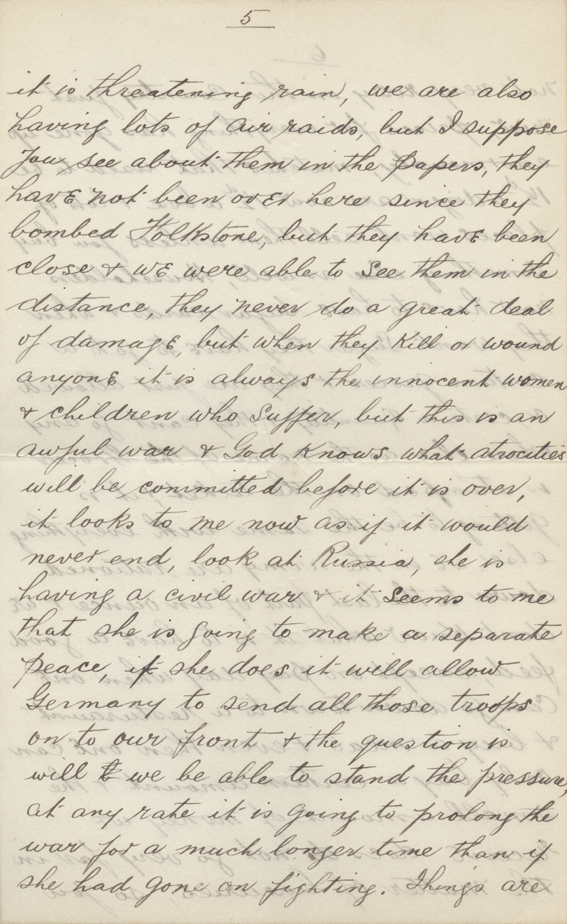 5
it is threatening rain, we are also
having lots of air raids, but I suppose
you see about them in the papers, they
have not been over here since they
bombed Folkstone, but they have been
close & we were able to see them in the
distance, they never do a great deal
of damage, but when they kill or wound
anyone it is always the innocent women
& children who suffer, but this is an
awful war & God knows what atrocities
will be committed before it is over,
it looks to me now as if it would
never end, look at Russia, she is
having a civil war & it seems to me
that she is going to make a separate
peace, if she does it will allow
Germany to send all those troops
on to our front & the question is
will we be able to stand the pressure,
at any rate it is going to prolong the
war for a much longer time than if
she had gone on fighting. Things are